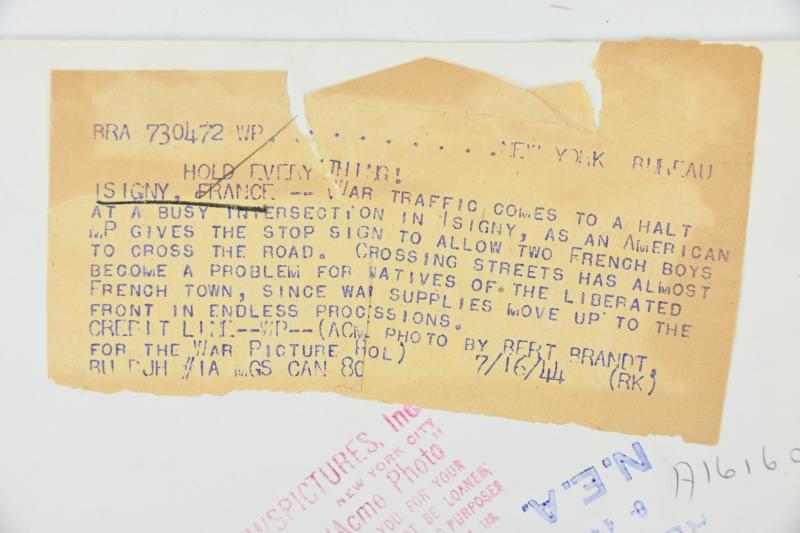 RRA 730472 WP. . . . . . . . . . NEW YORK BUREAU
HOLD EVERYTHING!
ISIGNY, FRANCE -- WAR TRAFFIC COMES TO A HALT
AT A BUSY INTERSECTION IN ISIGNY, AS AN AMERICAN
MP GIVES THE STOP SIGN TO ALLOW TWO FRENCH BOYS
TO CROSS THE ROAD. CROSSING STREETS HAS ALMOST
BECOME A PROBLEM FOR NATIVES OF THE LIBERATED
FRENCH TOWN, SINCE WAR SUPPLIES MOVE UP TO THE
FRONT IN ENDLESS PROCESSIONS.
CREDIT LINE--WP--(ACME PHOTO BY BERT BRANDT,
FOR THE WAR PICTURE POOL) 7/16/44 (RK)
BU #1A MGS CAN 80
WSPICTURES, Inc
NEW YORK CITY
"Acme Photo"
YOU FOR YOUR
BE LOANED,
PURPOSES
N.E.A.
A1616